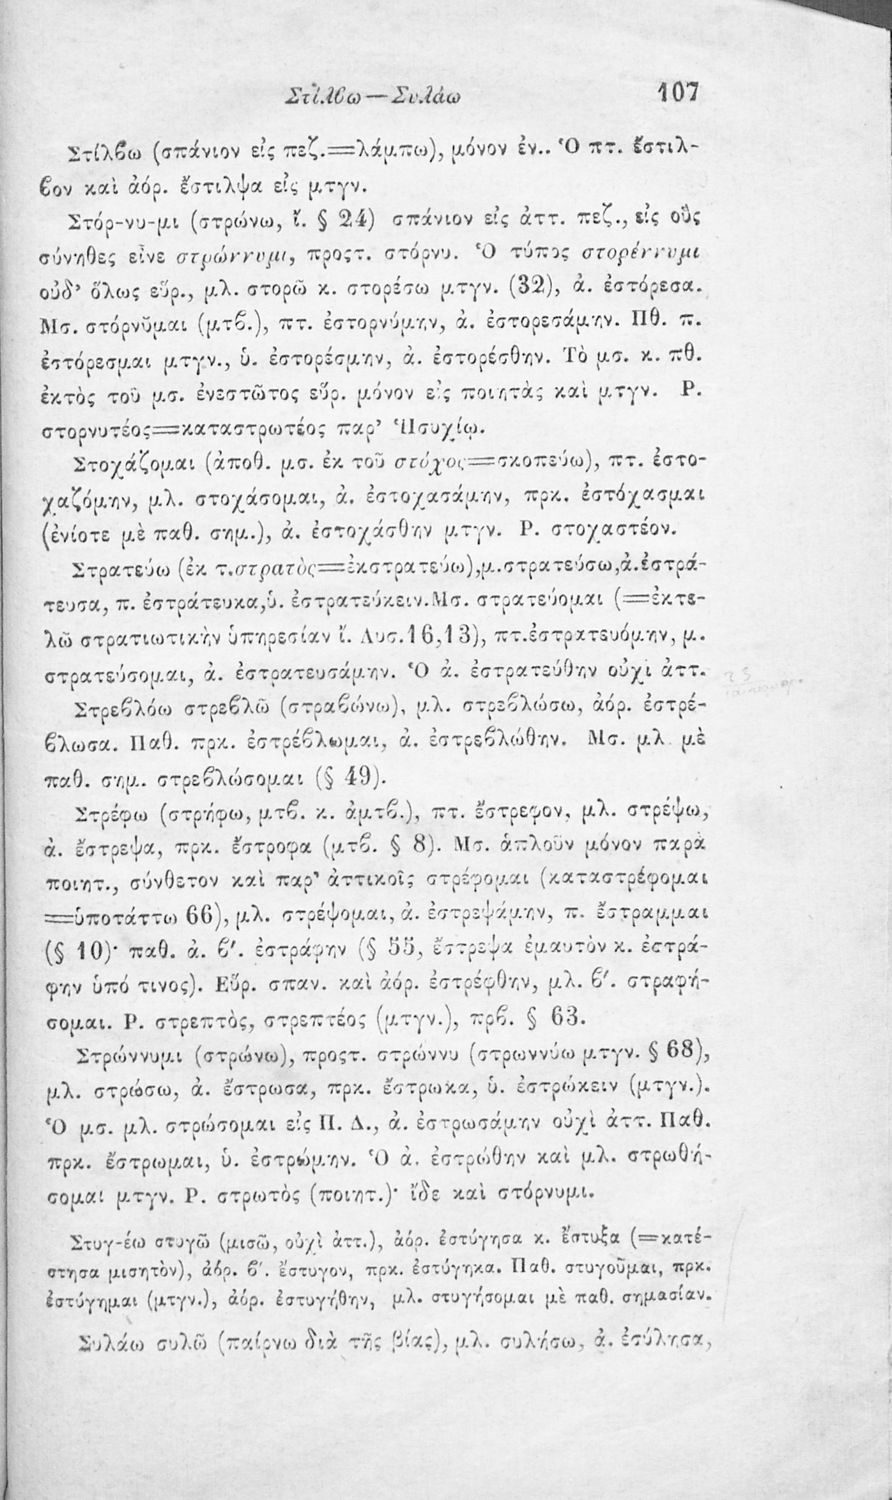 Στίλϐω — Συλάω 107
Στίλϐω (σπάνιον εἰς πεζ.=λάμπω), μόνον ἐν.. Ὁ πτ. ἔστιλ-
ϐον καὶ ἀόρ. ἔστιλψα εἰς μτγν.
Στόρ-νυ-μι (στρώνω, ἴ. § 24) σπάνιον εἰς ἀττ. πεζ., εἰς οὓς
σύνηθες εἶνε στρώννυμι, προςτ. στόρνυ. Ὁ τύπος στορέννυμι
οὐδ' ὅλως εὕρ., μλ. στορῶ κ. στορέσω μτγν. (32), ἀ. ἐστόρεσα.
Μσ. στόρνῠμαι (μτϐ.), πτ. ἐστορνύμην, ἀ. ἐστορεσάμην. Πθ. π.
ἐστόρεσμαι μτγν., ὑ. ἐστορέσμην, ἀ. ἐστορέσθην. Τὸ μσ. κ. πθ.
ἐκτὸς τοῦ μσ. ἐνεστῶτος εὕρ. μόνον εἰς ποιητὰς καὶ μτγν. Ρ.
στορνυτέος=καταστρωτέος παρ' Ἡσυχίῳ.
Στοχάζομαι (ἀποθ. μσ. ἐκ τοῦ στόχος=σκοπεύω), πτ. ἐστο-
χαζόμην, μλ. στοχάσομαι, ἀ. ἐστοχασάμην, πρκ. ἐστόχασμαι
(ἐνίοτε μὲ παθ. σημ.), ἀ. ἐστοχάσθην μτγν. Ρ. στοχαστέον.
Στρατεύω (ἐκ τ.στρατὸς=ἐκστρατεύω),μ.στρατεύσω,ἀ.ἐστρά-
τευσα, π. ἐστράτευκα,ὑ. ἐστρατεύκειν.Μσ. στρατεύομαι (=ἐκτε-
λῶ στρατιωτικὴν ὑπηρεσίαν ἴ. Λυσ.16,13), πτ.ἐστρατευόμην, μ.
στρατεύσομαι, ἀ. ἐστρατευσάμην. Ὁ ἀ. ἐστρατεύθην οὐχὶ ἀττ.
Στρεϐλόω στρεϐλῶ (στραϐώνω), μλ. στρεϐλώσω, ἀόρ. ἐστρέ-
ϐλωσα. Παθ. πρκ. ἐστρέϐλωμαι, ἀ. ἐστρεϐλώθην. Μσ. μλ. μὲ
παθ. σημ. στρεϐλώσομαι (§ 49).
Στρέφω (στρήφω, μτϐ. κ. ἀμτϐ.), πτ. ἔστρεφον, μλ. στρέψω,
ἀ. ἔστρεψα, πρκ. ἔστροφα (μτϐ. § 8). Μσ. ἁπλοῦν μόνον παρὰ
ποιητ., σύνθετον καὶ παρ' ἀττικοῖς στρέφομαι (καταστρέφομαι
=ὑποτάττω 66), μλ. στρέψομαι, ἀ. ἐστρεψάμην, π. ἔστραμμαι
(§ 10)· παθ. ἀ. ϐ'. ἐστράφην (§ 55, ἔστρεψα ἐμαυτὸν κ. ἐστρά-
φην ὑπό τινος). Εὕρ. σπαν. καὶ ἀόρ. ἐστρέφθην, μλ. ϐ'. στραφή-
σομαι. Ρ. στρεπτὸς, στρεπτέος (μτγν.), πρϐ. § 63.
Στρώννυμι (στρώνω), προςτ. στρώννυ (στρωννύω μτγν. § 68),
μλ. στρώσω, ἀ. ἔστρωσα, πρκ. ἔστρωκα, ὑ. ἐστρώκειν (μτγν.).
Ὁ μσ. μλ. στρώσομαι εἰς Π. Δ., ἀ. ἐστρωσάμην οὐχὶ ἀττ. Παθ.
πρκ. ἔστρωμαι, ὑ. ἐστρώμην. Ὁ ἀ. ἐστρώθην καὶ μλ. στρωθή-
σομαι μτγν. Ρ. στρωτὸς (ποιητ.)· ἴδε καὶ στόρνυμι.
Στυγ-έω στυγῶ (μισῶ, οὐχὶ ἀττ.), ἀόρ. ἐστύγησα κ. ἔστυξα (=κατέ-
στησα μισητὸν), ἀόρ. ϐ'. ἔστυγον, πρκ. ἐστύγηκα. Παθ. στυγοῦμαι, πρκ.
ἐστύγημαι (μτγν.), ἀόρ. ἐστυγήθην, μλ. στυγήσομαι μὲ παθ. σημασίαν.
Συλάω συλῶ (παίρνω διὰ τῆς βίας), μλ. συλήσω, ἀ. ἐσύλησα,